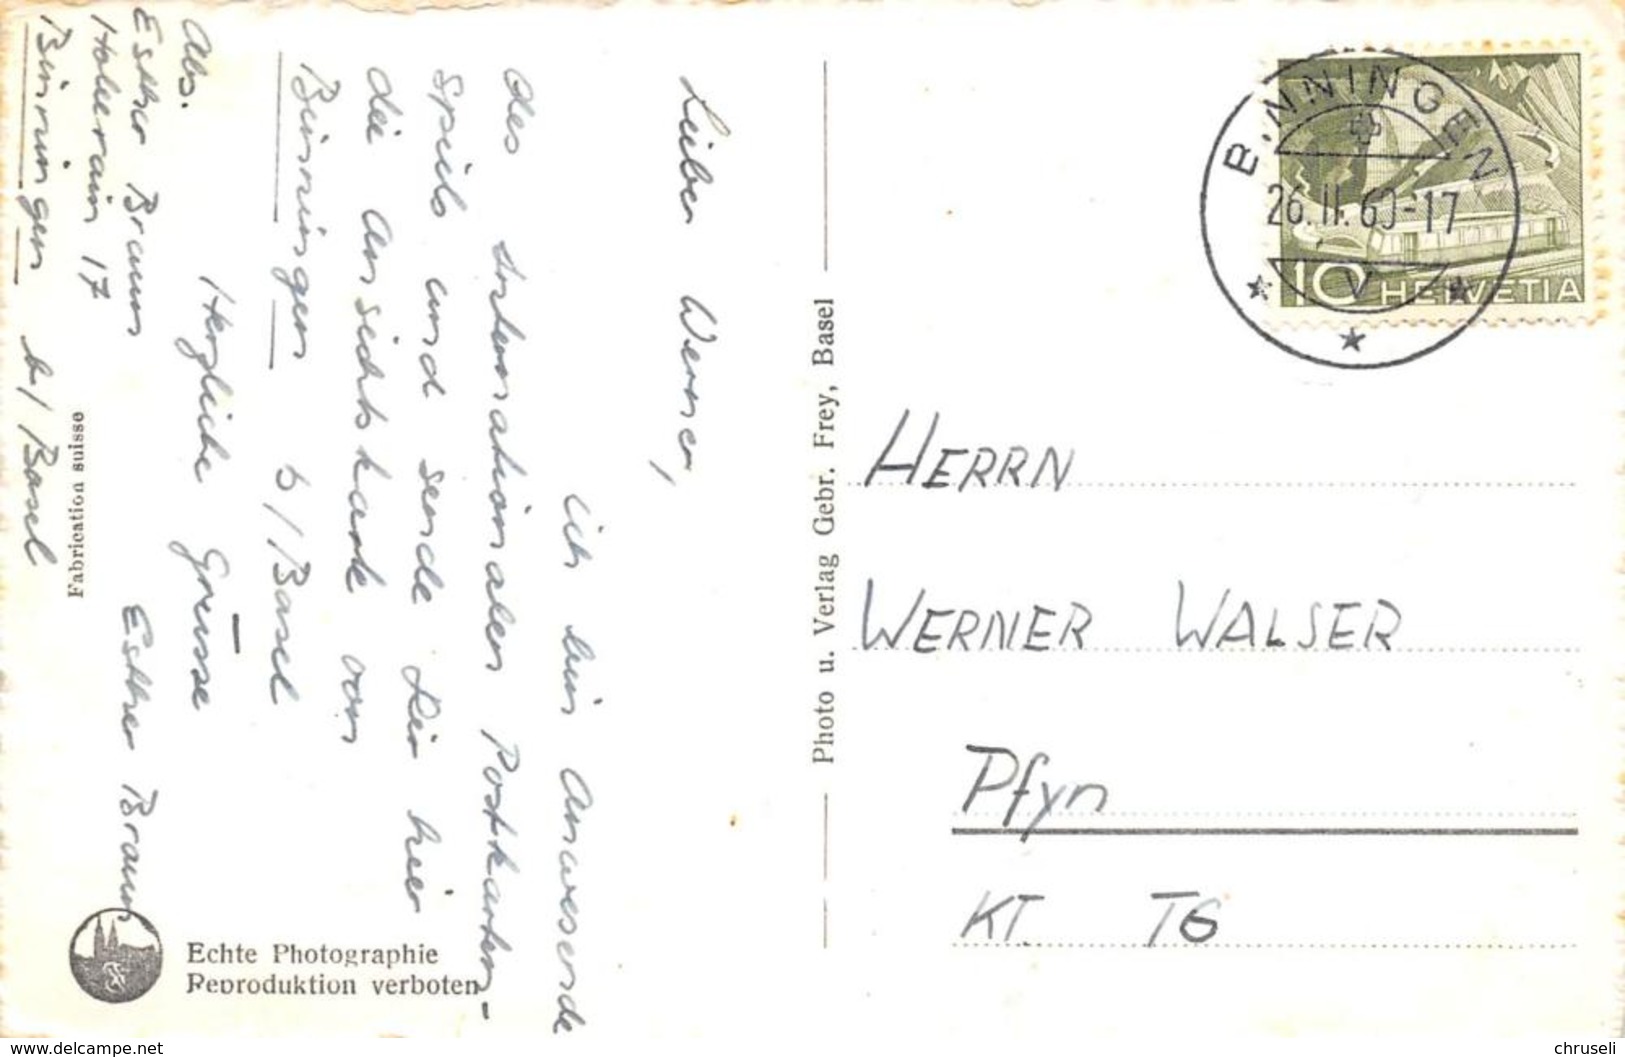 Lieber Werner,
ich bin Anwesende
des Internationalen Postkarten-
spiels und sende Dir hier
die Ansichtskarte von
Binningen b/Basel
Herzliche Grüsse
Esther Braun
Abs.
Esther Braun
Holeerain 17
Binningen b/Basel
Fabrication suisse
Echte Photographie
Reproduktion verboten
Photo u. Verlag Gebr. Frey, Basel
BINNINGEN
26.II.60-17
V
10 HELVETIA
HERRN
WERNER WALSER
Pfyn
KT. TG
www.delcampe.net
chruseli